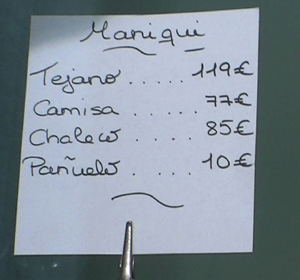 Maniqui
Tejano ..... 119€
Camisa ..... 77€
Chaleco ..... 85€
Pañuelo ..... 10€